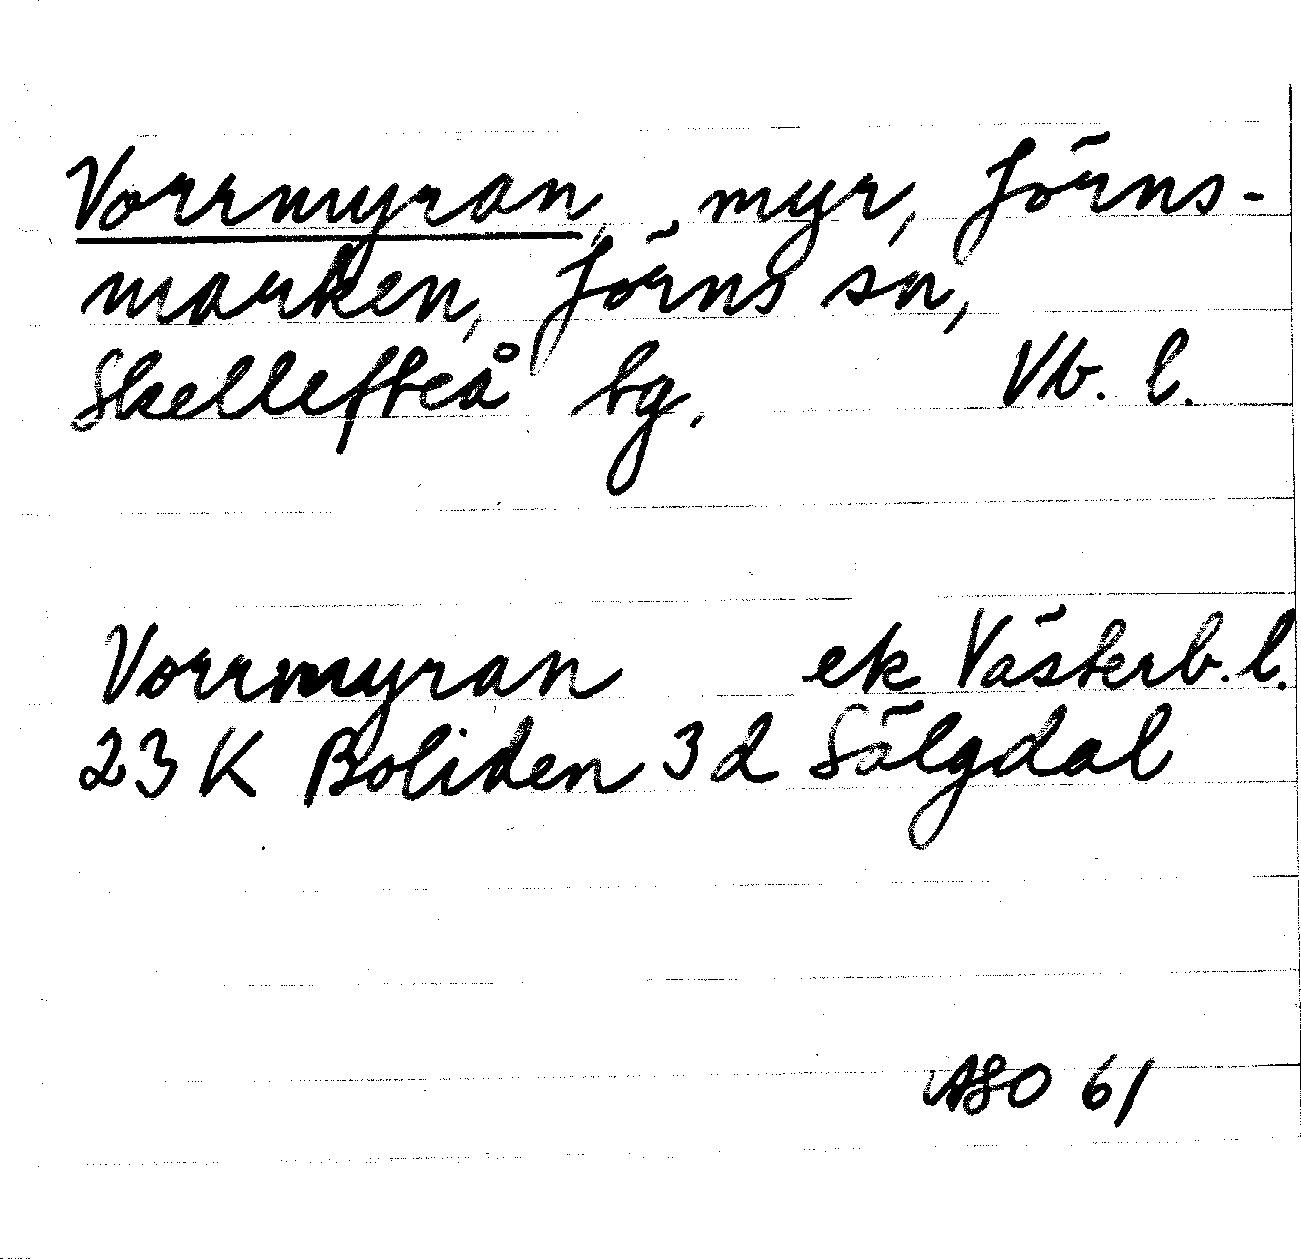 Vorrmyran, myr, Jörns-
marken, Jörns sn,
Skellefteå tg. Vb. l.
Vorrmyran ek Västerb. l.
23 K Boliden 3 d Sälgdal
ASO 61